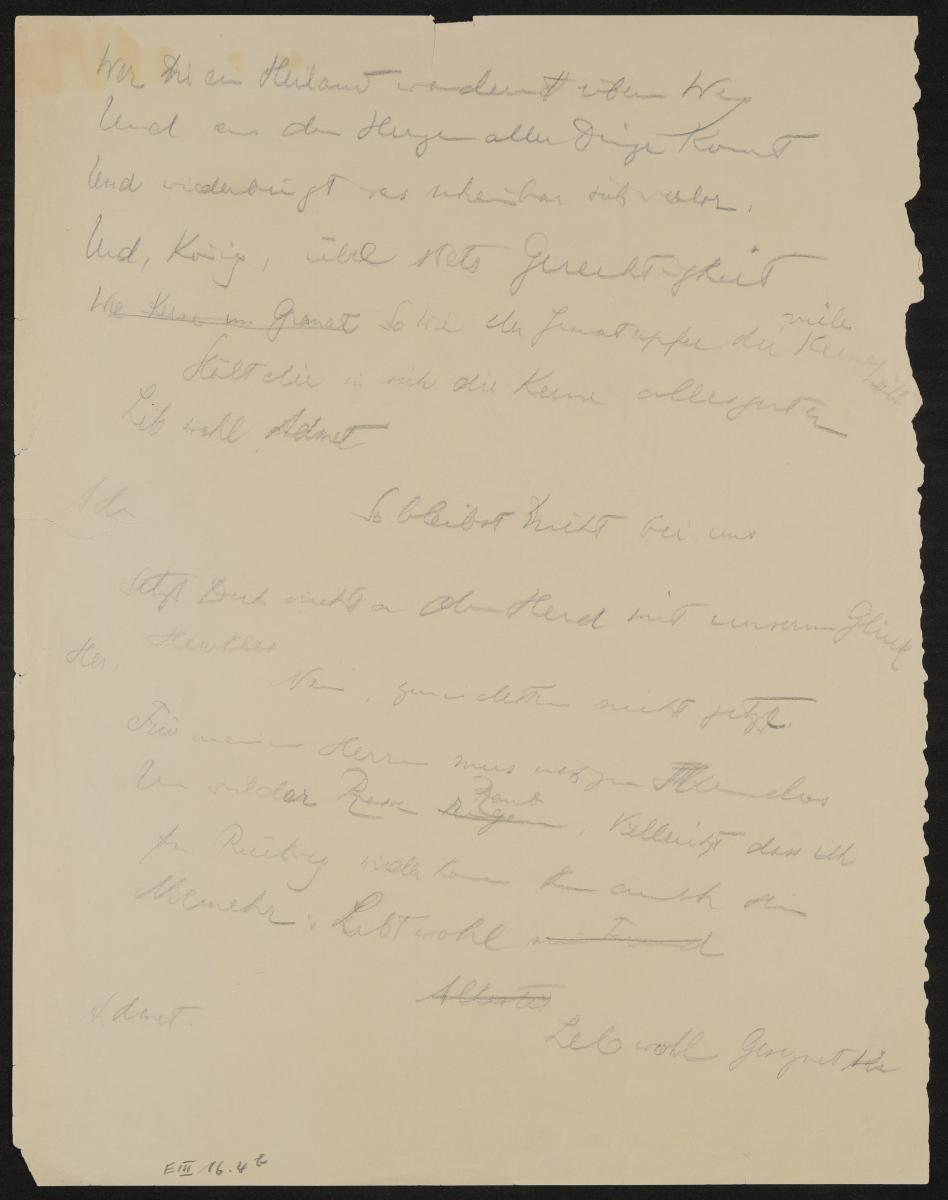 Wer Dir ein Heiland wandernd übern Weg
Und aus dem Herzen aller Dinge Kommt
Und wiederbringt was scheinbar sich verlor.
Und, König, übe stets Gerechtigkeit
Wie Kerne im Granat So wie der Granatapfel der Kerne viele
in sich die Kerne alles guten
Leb wohl Admet
Adm
So bleibst Du nicht bei uns
Setzt Dich nicht an den Herd mit unserm Glück
Her. Herakles
Nein, zumindesten nicht jetzt.
Für meinen Herrn muss
Um wilder Rosse Raub, Vielleicht dass ich
Am Rückweg wieder komm auch
Niemehr: Lebt wohl mein Freund
Alkestis
Admet.
Leb wohl Gesegnet
E III 16.4 b